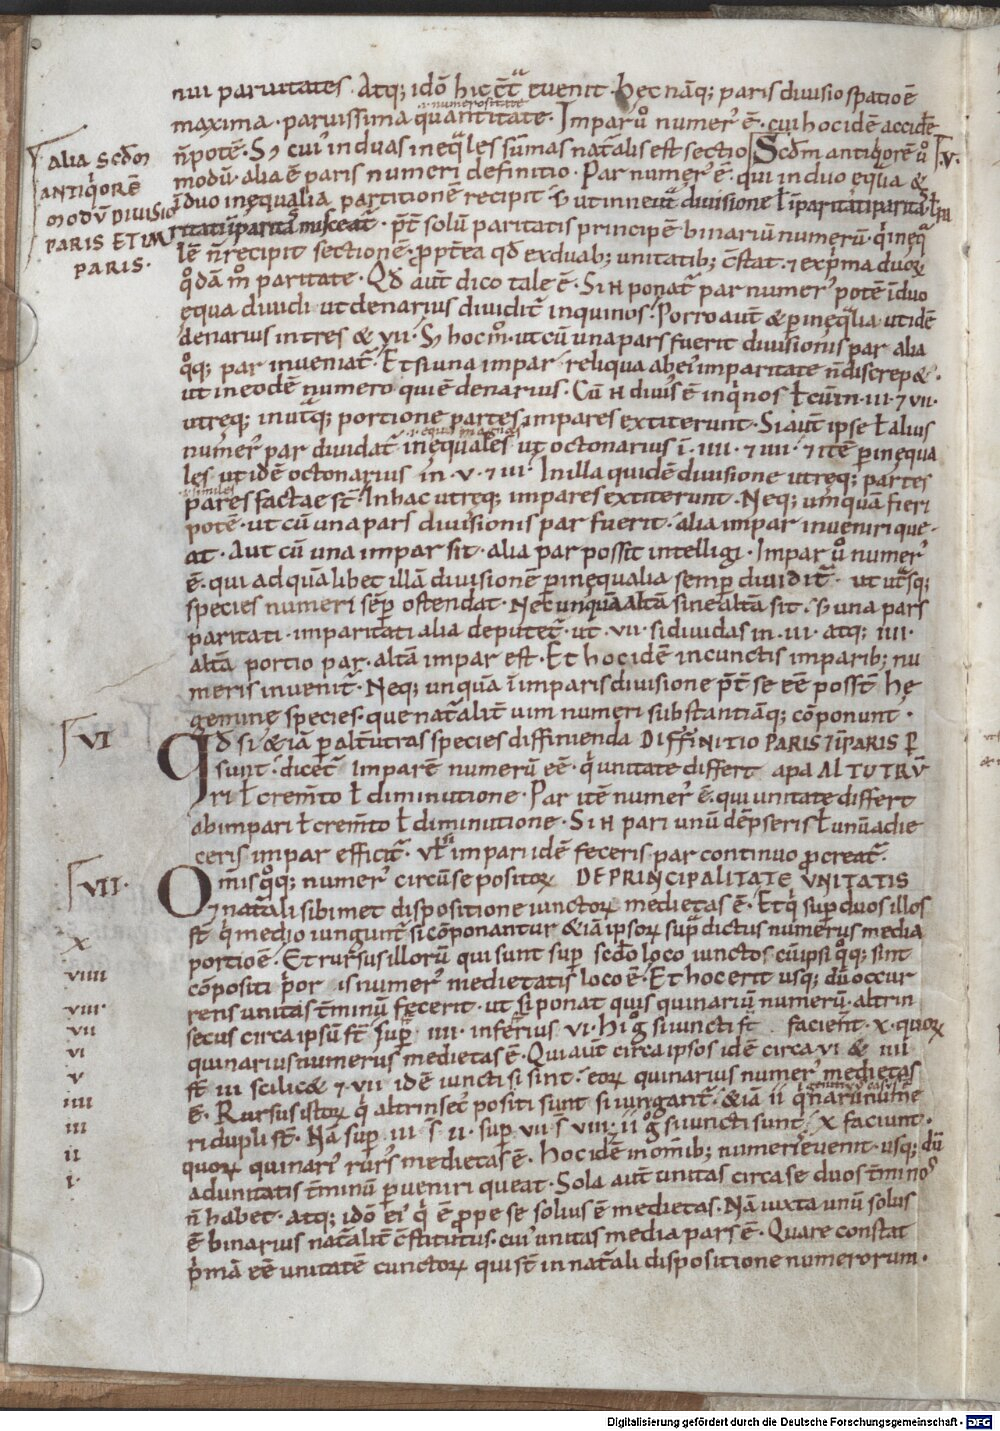 nui paruitates. Atq; idō hic ēt̄ euenit. hęc nāq; paris diuisio spatio ē
.i. numerositate
maxima. paruissima quantitate. Impar ů numer᷒ ē. cui hoc idē accidē
n̄ potē. Sꝫ cui᷒ in duas inęq̄les sūmas nat̄alis est sectio Scd̄m antiq̇orē ů
V.
alia scd̄m
antiq̇orē
modū diuisio
paris et im
paris.
modū. alia ē paris numeri definitio. Par numer᷒ ē. qui in duo ęq̄lia &
ī duo inęqualia partitionē recipit
ritati īparitas misceat̄. p̄t̄ solū paritatis principē binariū numerū. q̇ inęq̄
lē n̄ recipit sectionē. ꝓpt̄ea qd̄ ex duab; unitatib; c̄stat. ⁊ ex ṗma duoꝝ
q̊dā m̊ paritate. Qd̄ aut̄ dico tale ē. Si .n. ponat̄ par numer᷒ potē ī duo
ęqua diuidi ut denarius diuidit̄ in quinos. Porro aut̄ & p̱ inęq̄lia ut idē
denarius in tres & VII. Sꝫ hoc m̊. ut cū una pars fuerit diuisionis par alia
q̊q; par inueniat̄. Et si una impar. reliqua ab ei᷒ imparitate n̄ discrep&.
ut in eodē numero qui ē denarius. Cū .n. diuis᷒ ē in q̇nos ł cū in .III. ⁊ VII.
utręq; in utq̄; portione partes impares extiterunt. Si aut̄ ipse ł alius
numer᷒ par diuidat̄ in ęquales ut octonarius ī. IIII. ⁊ IIII. ⁊ itē p̱ inęqua
les ut idē octonarius in .V. ⁊ III. In illa quidē diuisione utręq; partes
.i. similes
pares factae st̄. In hac utręq; impares extiterunt. Neq; umquā fieri
potē. ut cū una pars diuisionis par fuerit. alia impar inueniri que
at. Aut cū una impar sit. alia par possit intelligi. Impar ů numer᷒
ē. qui ad quālibet illā diuisionē p̱ inęqualia semp̱ diuidit̄. ut ut̄sq;
species numeri sēp̱ ostendat. Nec unquā alt̄a sine alt̄a sit. una pars
paritati. imparitati alia deputet̄. ut .VII. si diuidas in .III. atq; IIII.
alt̄a portio par. alt̄a impar est. Et hoc idē in cunctis imparib; nu
meris inuenit̄. Neq; unquā ī imparis diuisione p̄t̄ se eē poss̄t hę
geminę species. que nat̄alit̄ uim numeri substantiāq; cōponunt.
VI
Qd̄ si &iā p̱ alt̄utras species diffinienda DIFFINITIO PARIS ⁊ ĪPARIS P̱
sunt. dicet̄ imparē numerū eē. q̇ unitate differt a pa ALTUTRŪ
ri ł crem̄to ł diminutione. Par itē numer᷒ ē. qui unitate differt
ab impari ł crem̄to ł diminutione. Si .n. pari unū dēpseris ł unū adie
ceris impar efficit̄. uł si impari idē feceris par continuo ꝓcreat̄.
VII.
Om̄is q̊q; numer᷒ circū se positoꝝ DE PRINCIPALITATE UNITATIS
⁊ nat̄ali sibimet dispositione iunctoꝝ medietas ē. Et q̇ sup̱ duos illos
st̄ q̇ medio iungunt̄ si cōponantur &iā ipsoꝝ supradictus numerus media
portio ē. Et rursus illorū qui sunt sup̱ scd̄o loco iunctos cū ipsi q̊q; sint
cōpositi ṗor is numer᷒ medietatis loco ē. Et hoc erit usq; dū occur
rens unitas t̄minū fecerit. ut si ponat quis quinariū numerū. altrin
secus circa ipsū st̄ sup̱ IIII. inferius VI. hi g̊ si iuncti st̄ facient. X. quoꝝ
quinarius numerus medietas ē. Qui aut̄ circa ipsos idē circa VI & IIII
st̄ III scilic& ⁊ VII idē iuncti si sint. eoꝝ quinarius numer᷒ medietas
ē. Rursus istoꝝ q̇ altrinsec᷒ positi sunt si iungant̄. &iā II q̇narii nume
ri dupli st̄. Nā sup̱ III s̄ II. sup̱ VII s̄ VIII; II g̊ si iuncti sunt X faciunt.
quoꝝ quinari᷒ rurs᷒ medietas ē. hoc idē in om̄ib; numeris euenit. usq; dū
ad unitatis t̄minū p̱ueniri queat. Sola aut̄ unitas circa se duos t̄minos
n̄ habet. atq; idō ei᷒ q̇ ē ꝓpe se solius ē medietas. Nā iuxta unū solus
ē binarius nat̄alit̄ c̄stitutus. cui᷒ unitas media pars ē. Quare constat
ṗmā eē unitatē cunctoꝝ qui st̄ in nat̄ali dispositione numerorum.
X
VIIII
VIII
VII
VI
V
IIII
III
II
I.
Digitalisierung gefördert durch die Deutsche Forschungsgemeinschaft - DFG